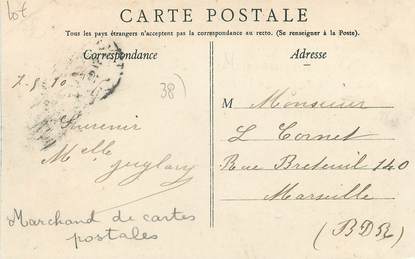 lot
CARTE POSTALE
Tous les pays étrangers n'acceptent pas la correspondance au recto. (Se renseigner à la Poste).
Correspondance
Adresse
38)
Souvenir
Melle
M Monsieur
L Cornet
Rue Breteuil 140
Marseille
(BDR)
Marchand de cartes
postales